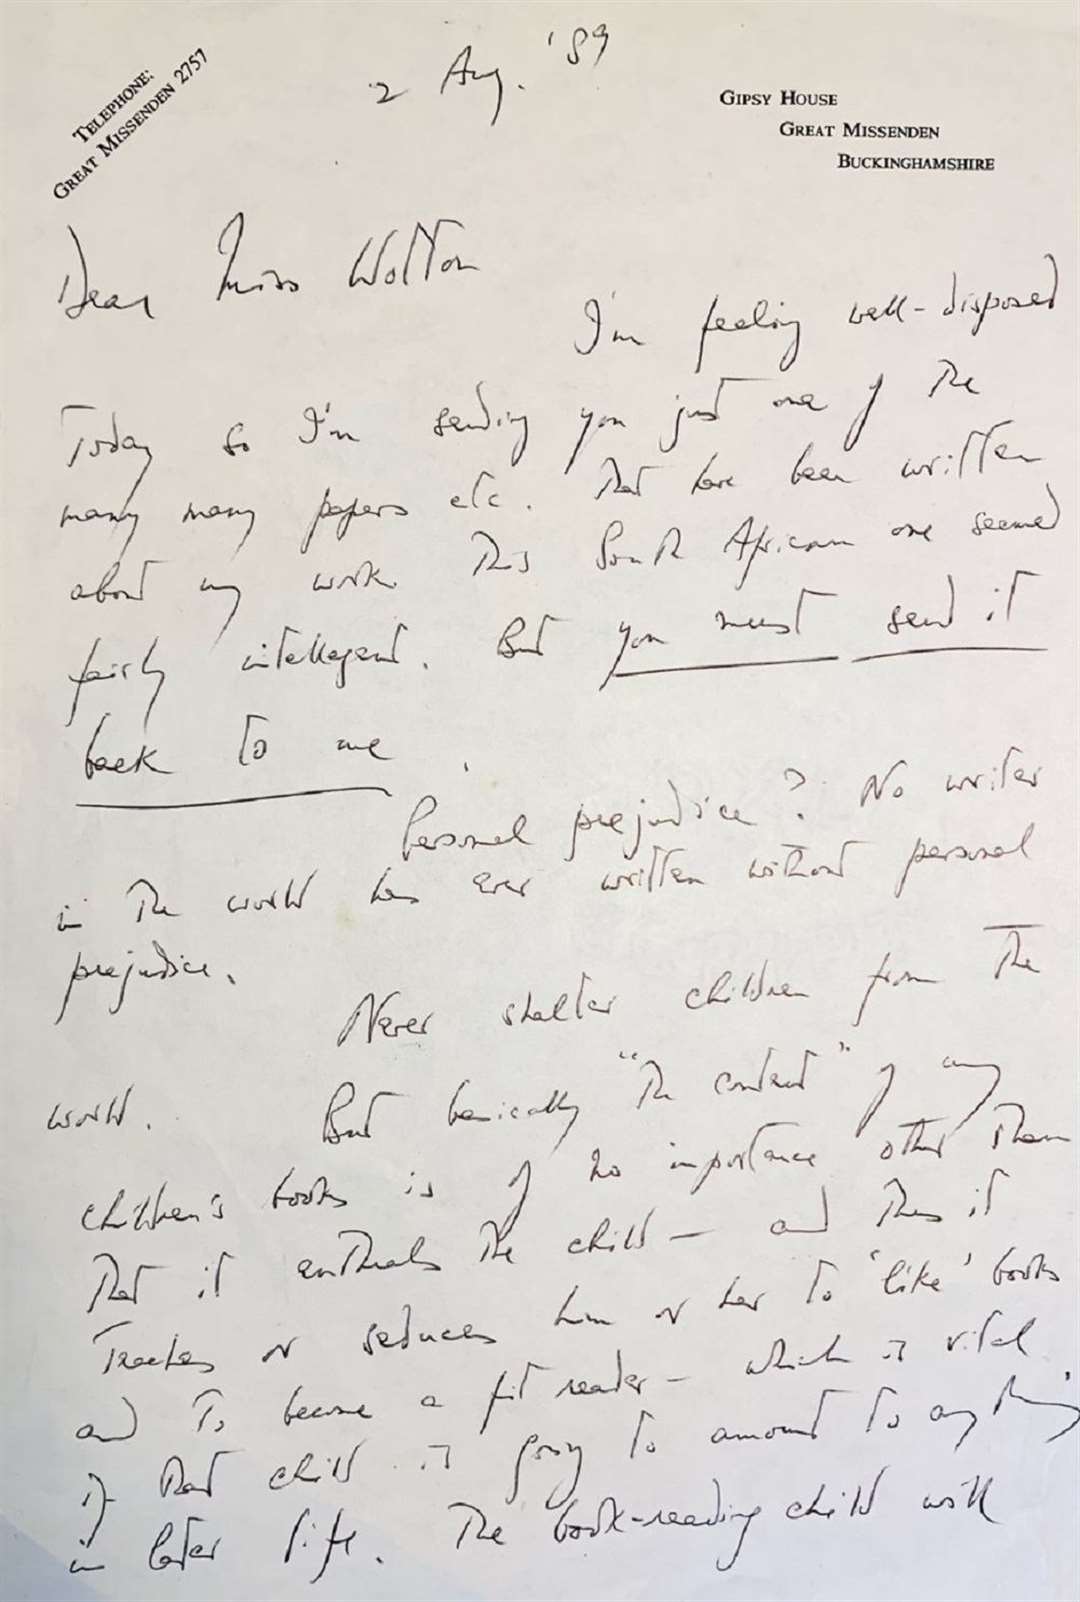 TELEPHONE:
GREAT MISSENDEN 2757
2 Aug. '89
GIPSY HOUSE
GREAT MISSENDEN
BUCKINGHAMSHIRE
Dear Miss Wotton
I'm feeling well-disposed
Today so I'm sending you just one of the
many many papers etc. that have been written
about my work. This South African one seemed
fairly intellegent. But you must send it
back to me.
Personal prejudice? No writer
in the world has ever written without personal
prejudice.
Never shelter children from the
world. But basically "the content" of any
children's books is of no importance other than
that it enthrals the child — and thus it
Teaches or seduces him or her to 'like' books
and to become a fit reader — which is vital
if that child is going to amount to anything
in later life. The book-reading child will